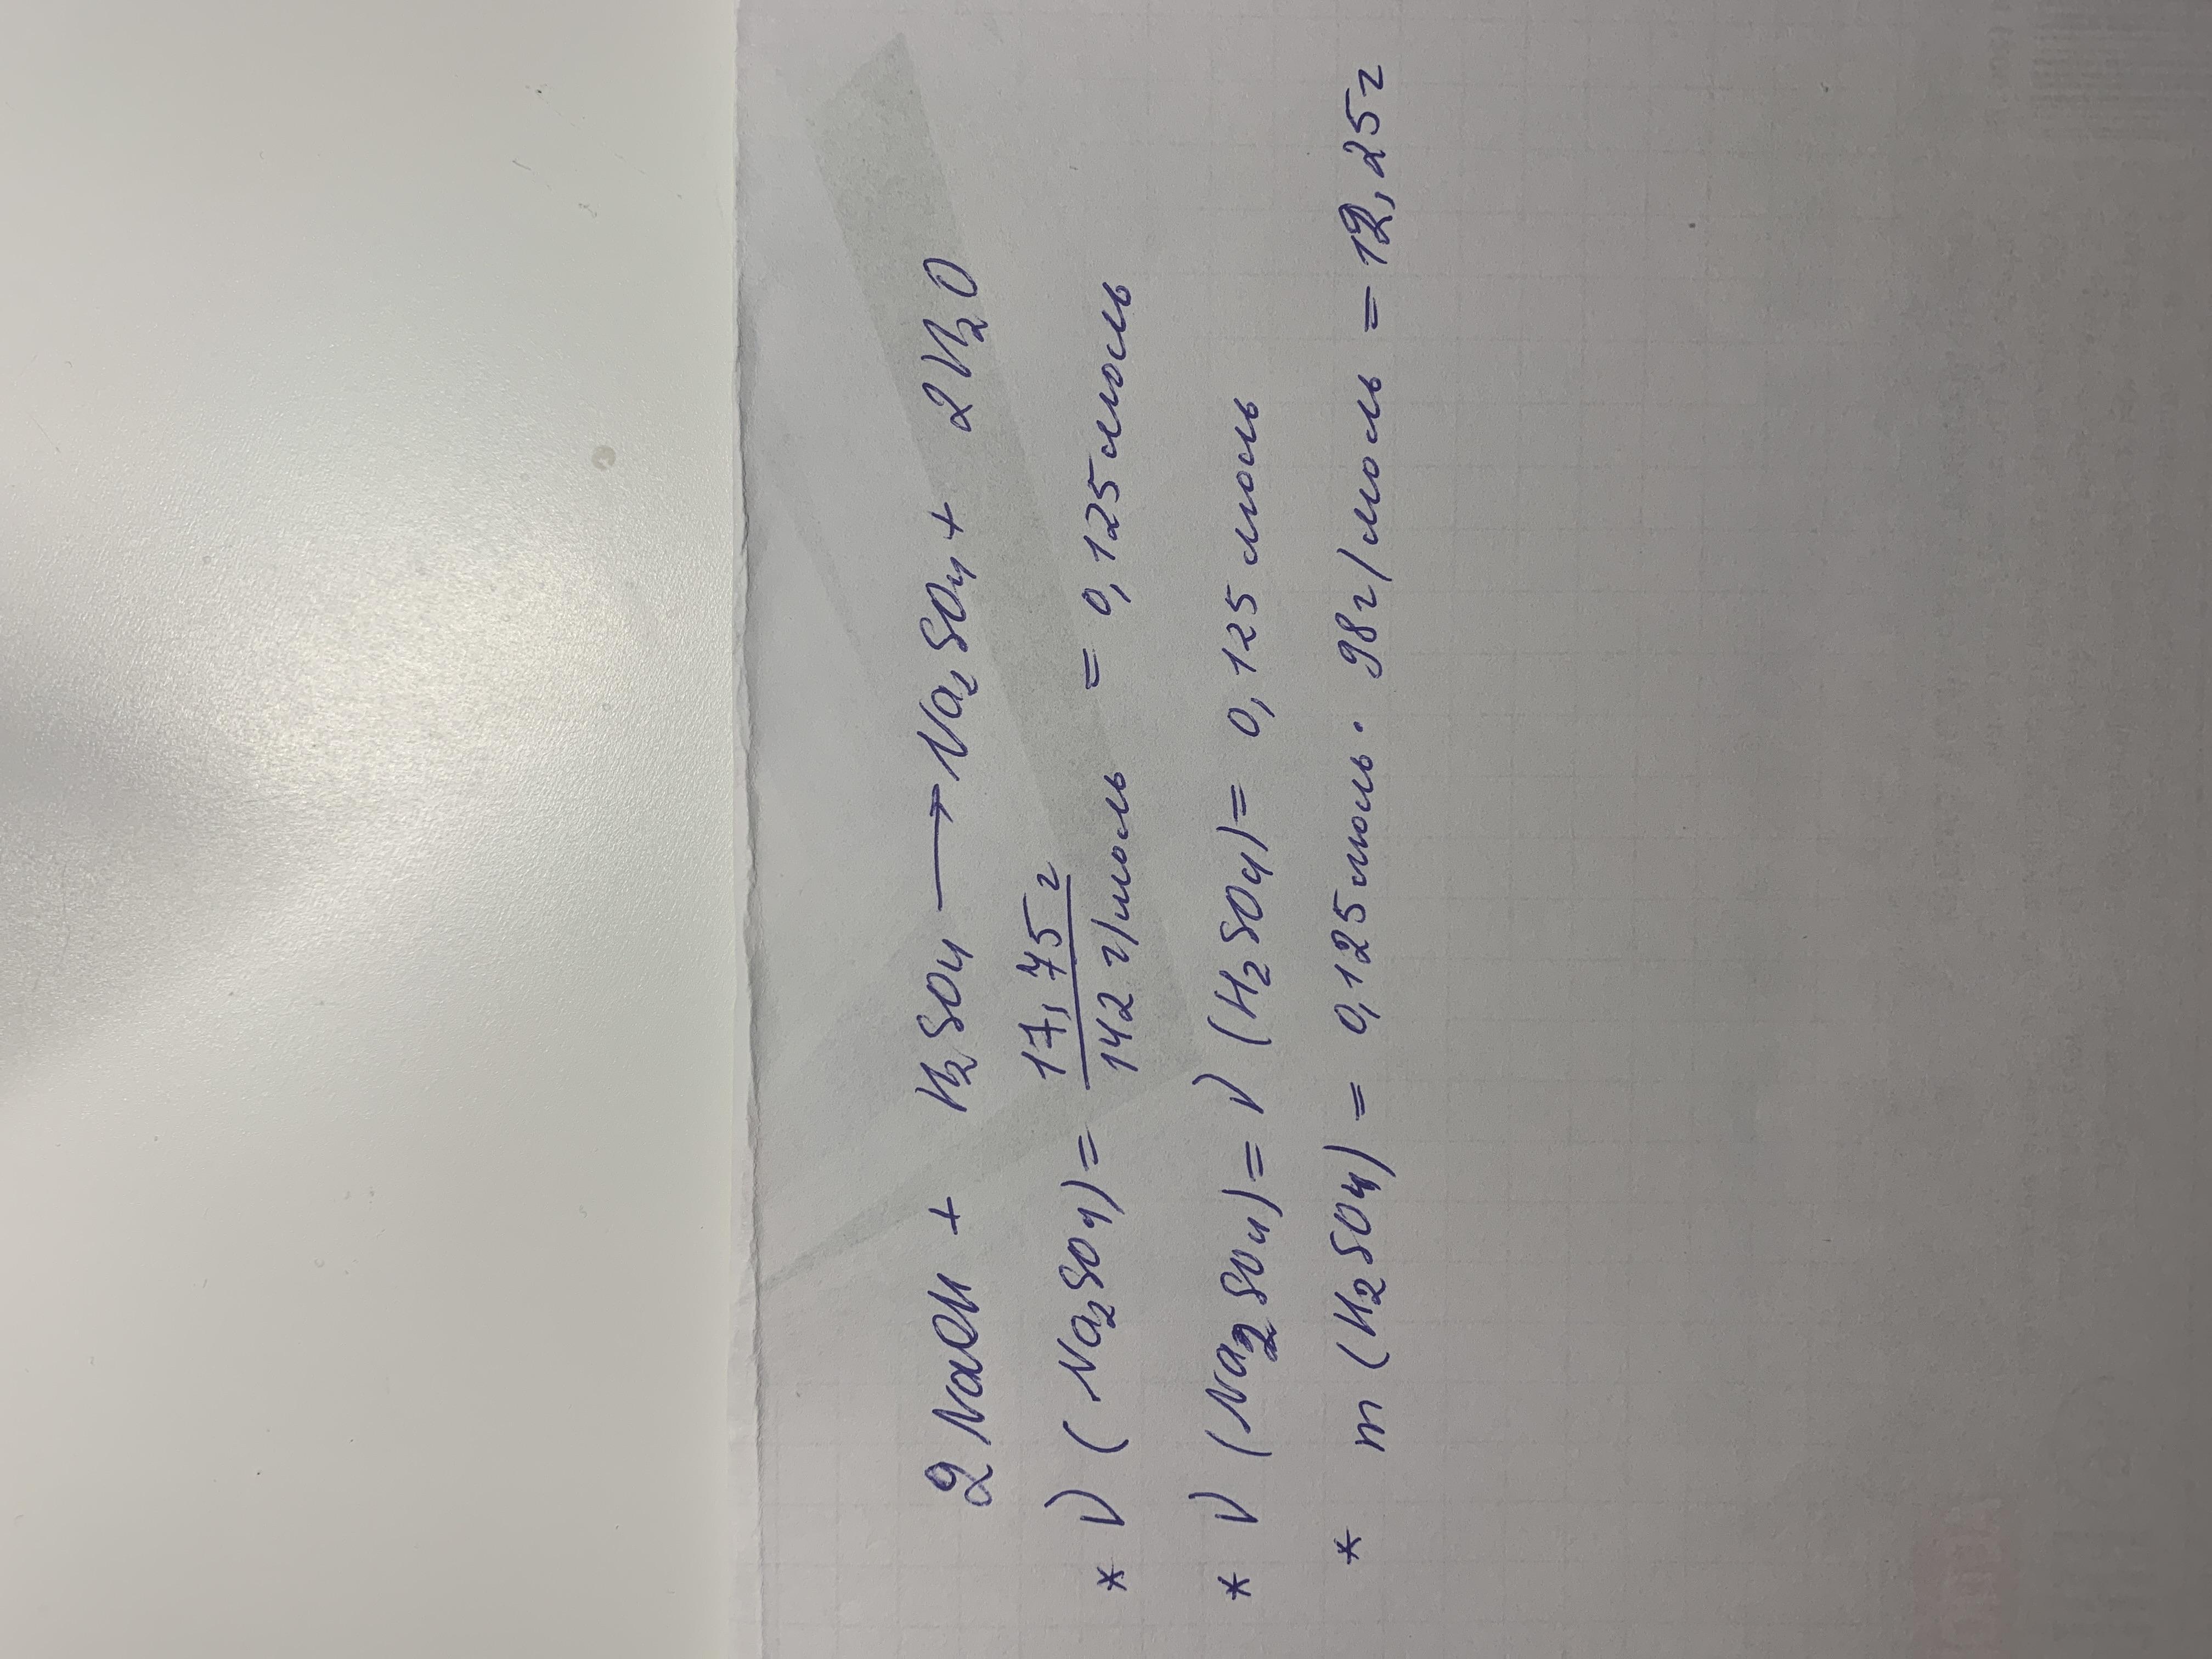 2 NaOH + H₂SO₄ ⟶ Na₂SO₄ + 2H₂O
* ν (Na₂SO₄) = 17,75 г / 142 г/моль = 0,125 моль
* ν (Na₂SO₄) = ν (H₂SO₄) = 0,125 моль
* m (H₂SO₄) = 0,125 моль · 98 г/моль = 12,25 г